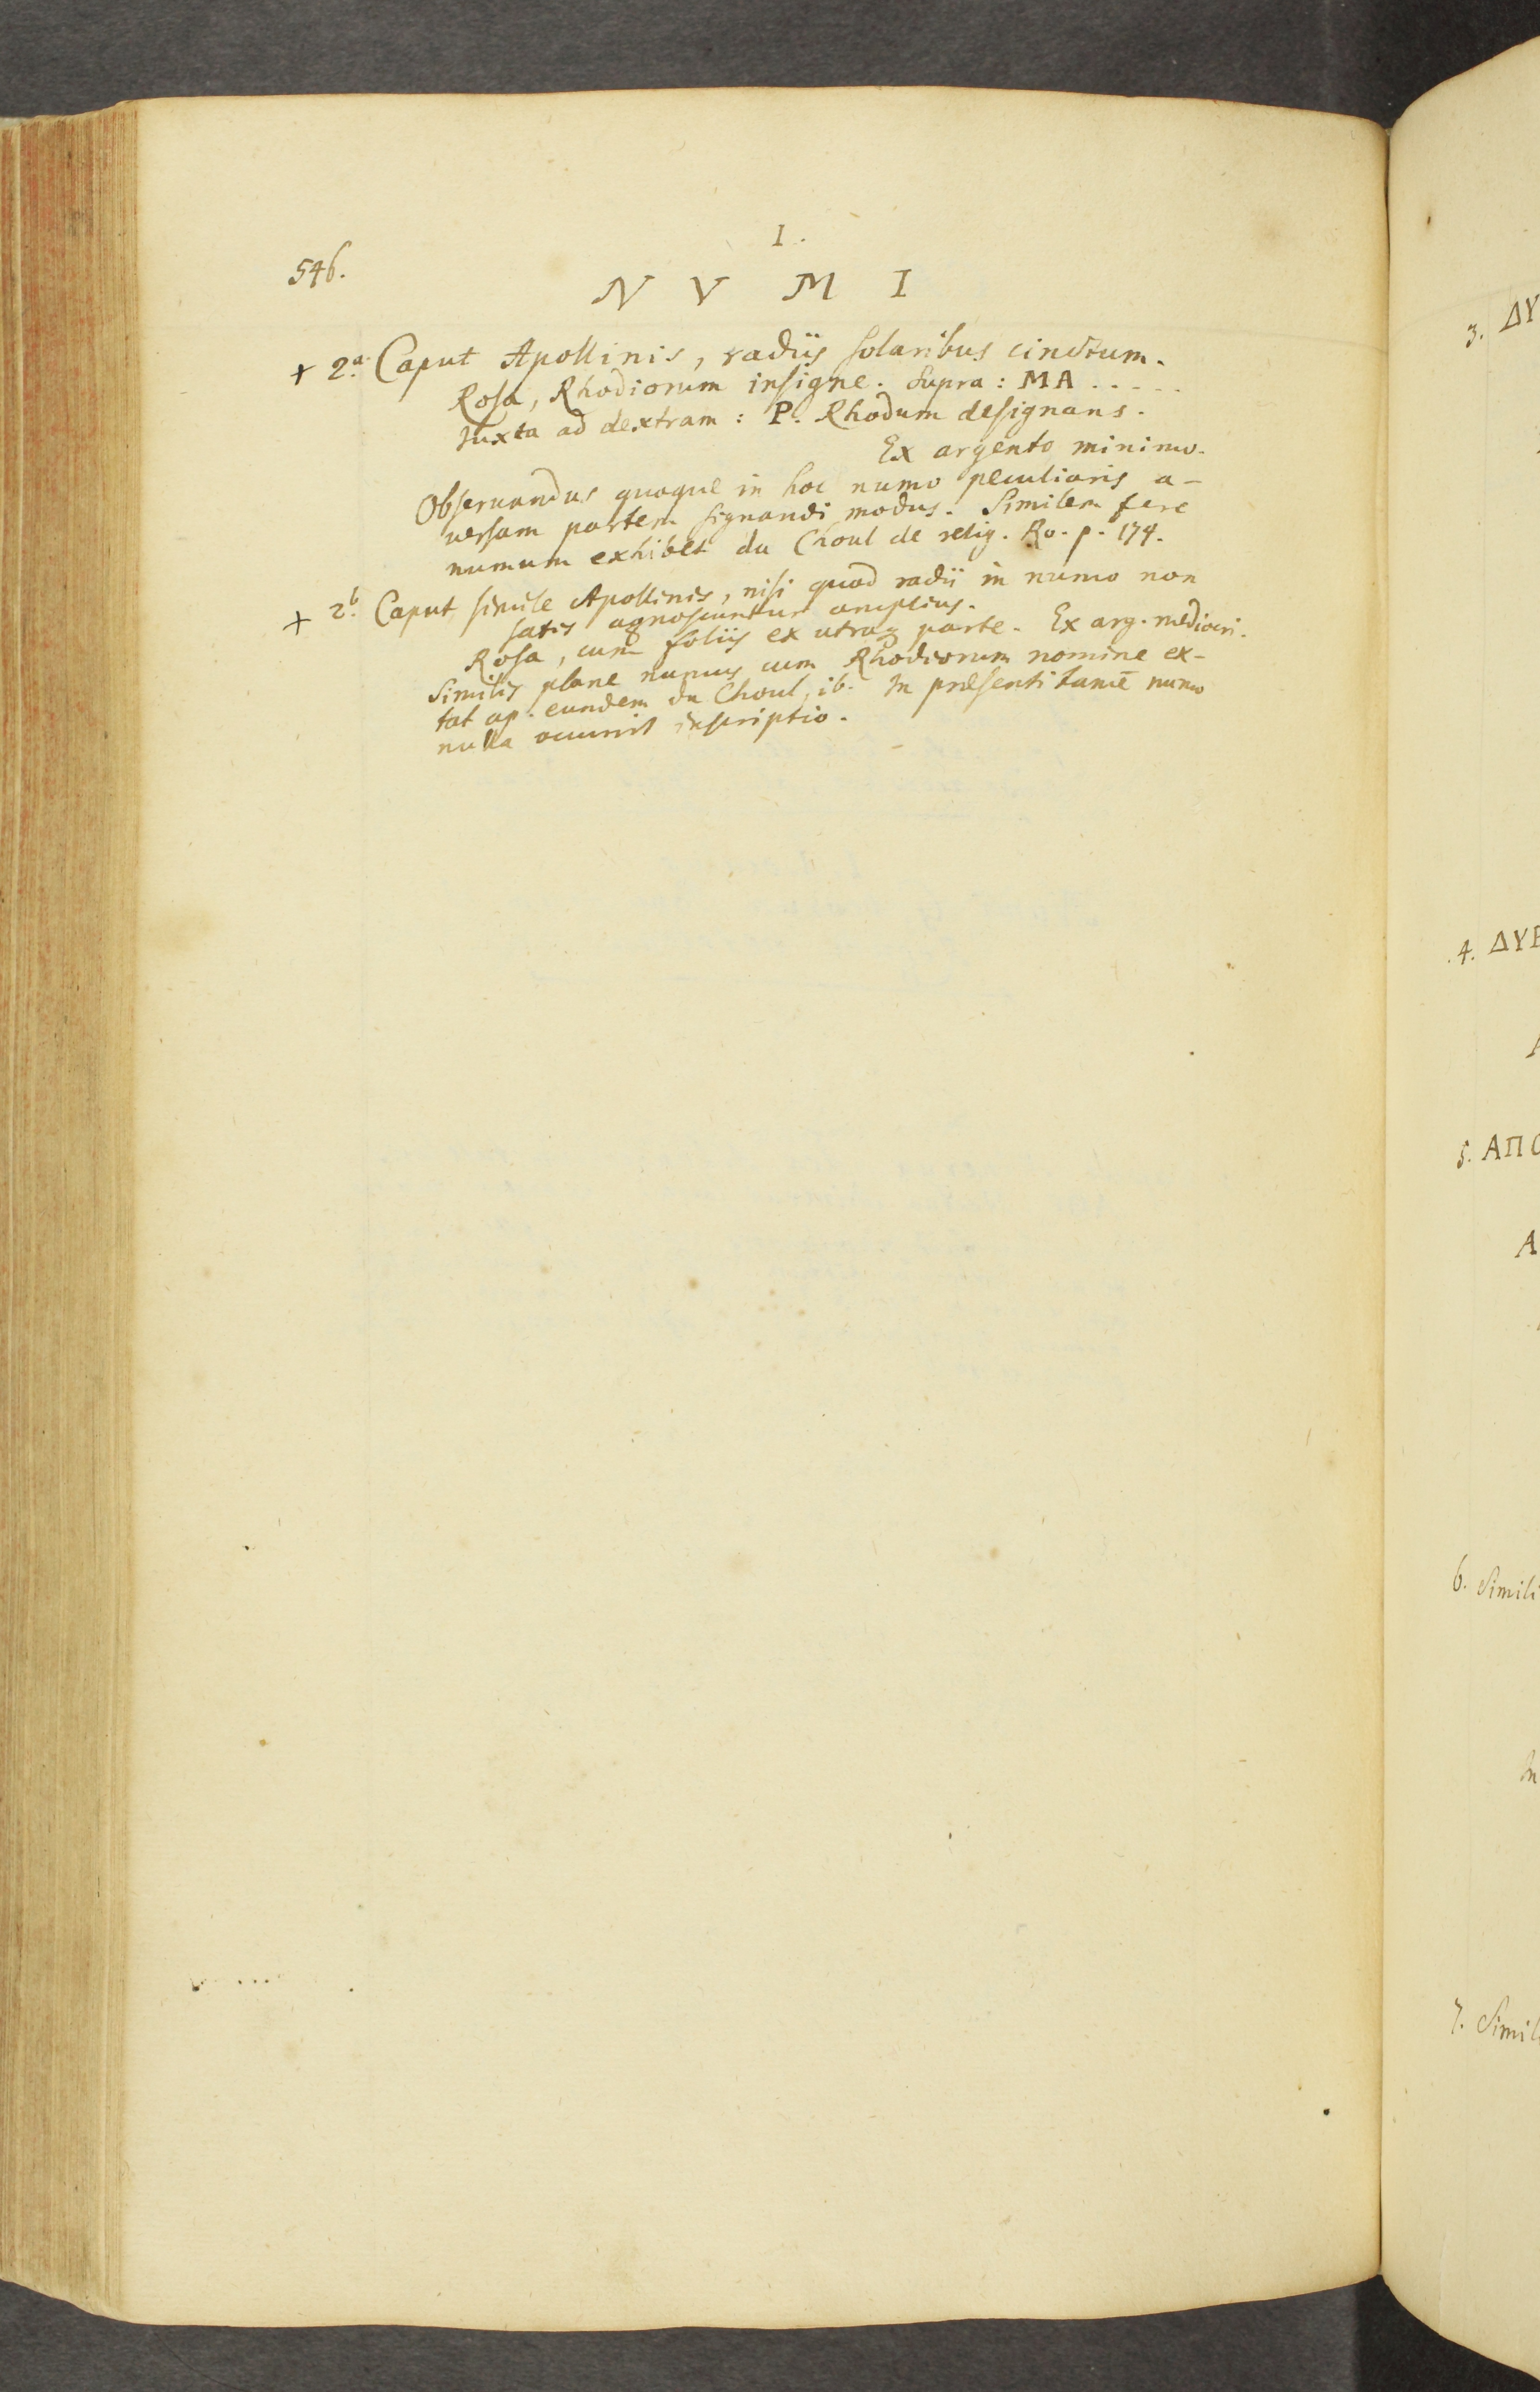 I.
546.
N V M I
+ 2.a Caput Apollinis, radiis solaribus cinctum.
Rosa, Rhodiorum insigne. Supra: MA . . . . .
Juxta ad dextram: P. Rhodum designans.
Ex argento minimo.
Obseruandus quoque in hoc numo peculiaris a-
uersam partem signandi modus. Similem fere
numum exhibet du Choul de relig. Ro. p. 174.
+ 2.b Caput simile Apollinis, nisi quod radii in numo non
satis agnoscuntur amplius.
Rosa, cum foliis ex utraq parte. Ex arg. mediocri.
Similis plane numus cum Rhodiorum nomine ex-
tat ap. eundem du Choul, ib. In præsenti tamē numo
nulla occurrit inscriptio.
3. ΔΥ
4. ΔΥΡ
5. ΑΠΟ
A
6. Simili
In
7. Simil